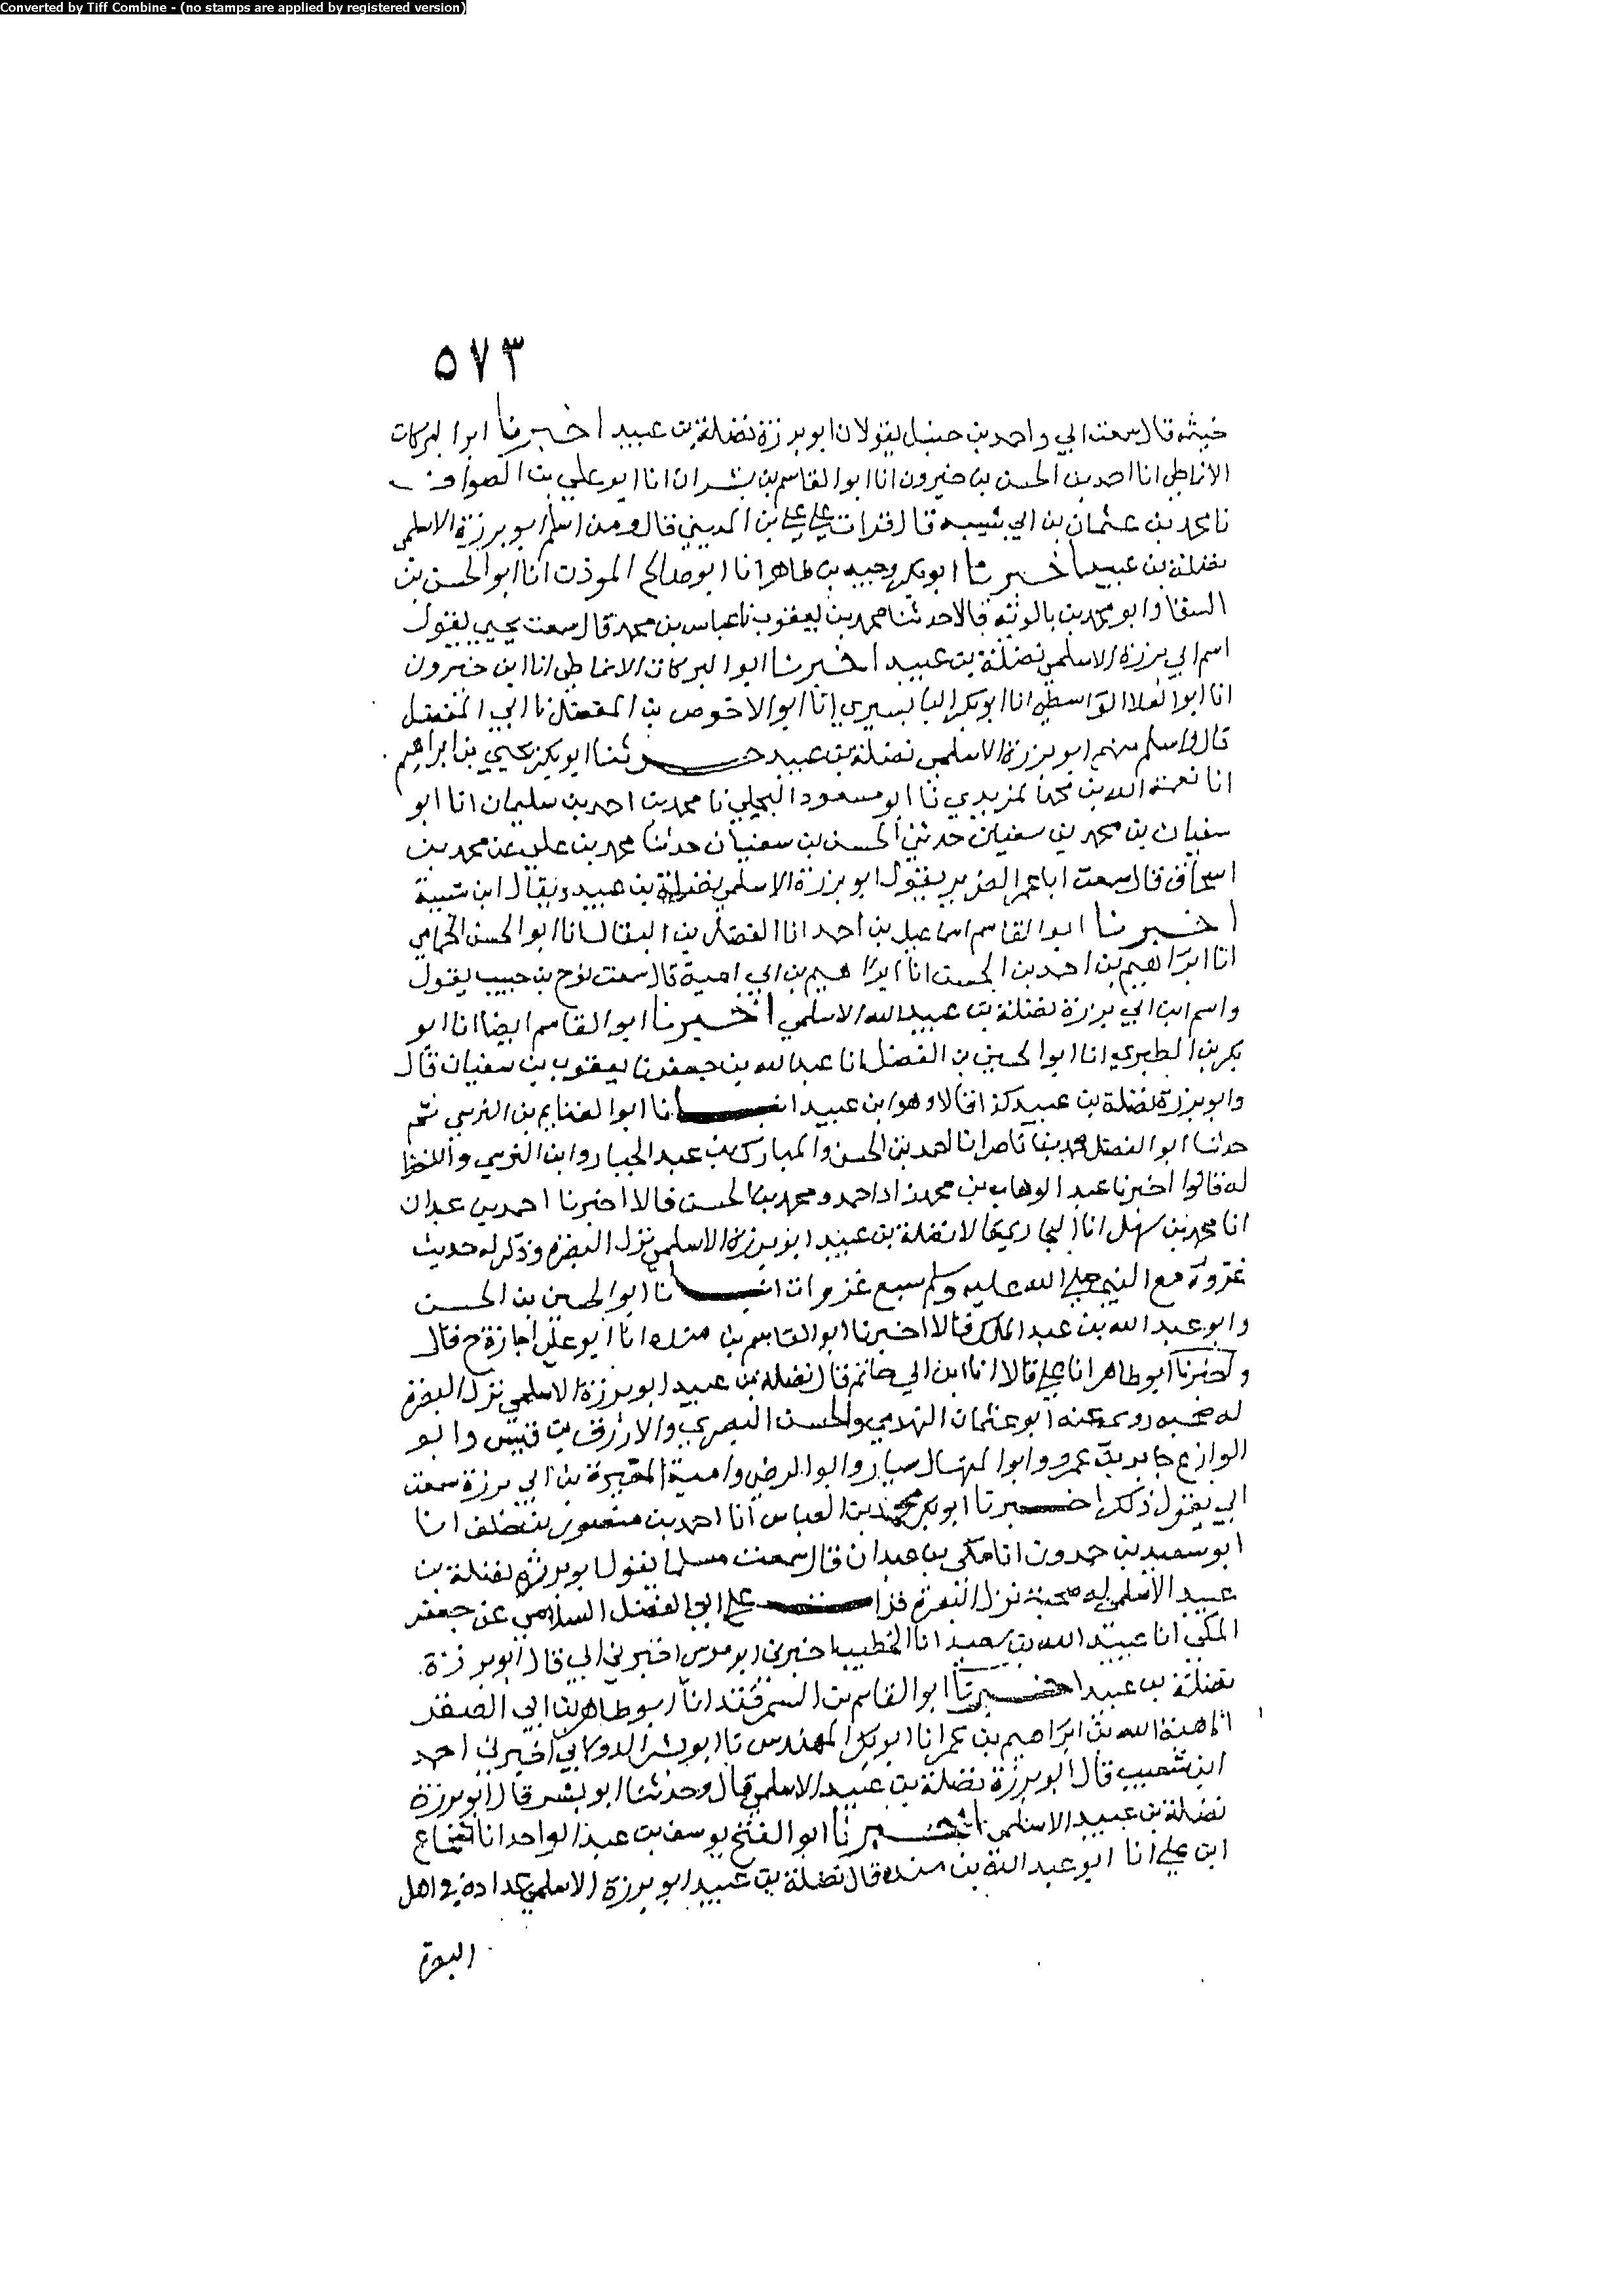 Converted by Tiff Combine - (no stamps are applied by registered version)
٥٧٣
خيثمه قال سمعت ابي واحمد بن حنبل يقولان ابو برزة نضلة بن عبيد اخبرنا ابو البركات
الانماطي انا احمد بن الحسن بن خيرون انا ابو القاسم بن بشران انا ابو علي بن الصواف
نا محمد بن عثمان بن ابي شيبه قال قرات علي علي بن المديني قال ومن اسلم ابو برزة الاسلمي
نضلة بن عبيد اخبرنا ابو بكر وجيه بن طاهر انا ابو صالح الموذن انا ابو الحسن بن
السقا وابو محمد بن بالويه قالا حدثنا محمد بن يعقوب نا عباس بن محمد قال سمعت يحيي يقول
اسم ابي برزة الاسلمي نضلة بن عبيد اخبرنا ابو البركات الانماطي انا ابن خيرون
انا ابو العلا الواسطي انا ابو بكر البابسيري انا ابو الاحوص بن المفضل نا ابي المفضل
قال واسلم منهم ابو برزة الاسلمي نضلة بن عبيد حدثنا ابو بكر يحيي بن ابراهيم
انا نعمة الله بن محمد المزيدي نا ابو مسعود البجلي نا محمد بن احمد بن سليمان انا ابو
سفيان بن محمد بن سفيان حدثني الحسن بن سفيان حدثنا محمد بن علي عن محمد بن
اسحاق قال سمعت ابا عمر الضرير يقول ابو برزة الاسلمي نضلة بن عبيد ويقال ابن شيبة
اخبرنا ابو القاسم اسماعيل بن احمد انا الفضل بن البقال انا ابو الحسن الحمامي
انا ابراهيم بن احمد بن الحسن انا ابراهيم بن ابي امية قال سمعت نوح بن حبيب يقول
واسم ابي برزة نضلة بن عبيد الله الاسلمي اخبرنا ابو القاسم ايضا انا ابو
بكر بن الطبري انا ابو الحسين بن الفضل انا عبد الله بن جعفر نا يعقوب بن سفيان قال
وابو برزة نضلة بن عبيد كذا قالا وهو ابن عبيد انبانا ابو الغنايم بن النرسي ثم
حدثنا ابو الفضل محمد بن ناصر انا احمد بن الحسن والمبارك بن عبد الجبار وابن النرسي واللفظ
له قالوا اخبرنا عبد الوهاب بن محمد زاد احمد ومحمد بن الحسن قالا اخبرنا احمد بن عبدان
انا محمد بن سهل انا البخاري قالا نضلة بن عبيد ابو برزة الاسلمي نزل البصرة وذكر له حديث
غزوة مع النبي صلي الله عليه وسلم سبع غزوات انبانا ابو الحسين بن الحسن
وابو عبد الله بن عبد الملك قالا اخبرنا ابو القاسم بن منده انا ابو علي اجازة ح قال
واخبرنا ابو طاهر انا علي قالا انا ابن ابي حاتم قال نضلة بن عبيد ابو برزة الاسلمي نزل البصرة
له صحبه روي عنه ابو عثمان النهدي والحسن البصري والازرق بن قيس وابو
الوازع جابر بن عمرو وابو المنهال سيار وابو الرضي وامية المغيرة بن ابي برزة سمعت
ابي يقول ذلك اخبرنا ابو بكر محمد بن العباس انا احمد بن منصور بن خلف انا
ابو سعيد بن حمدون انا مكي بن عبدان قال سمعت مسلما يقول ابو برزة نضلة بن
عبيد الاسلمي له صحبة نزل البصرة قرات علي ابي الفضل السلامي عن جعفر
المكي انا عبيد الله بن سعيد انا الخطيب اخبرني ابو موسي اخبرني ابي قال ابو برزة
نضلة بن عبيد اخبرنا ابو القاسم بن السمرقندي انا ابو طاهر بن ابي الصقر
انا هبة الله بن ابراهيم بن عمر انا ابو بكر المهندس نا ابو بشر الدولابي اخبرني احمد
ابن شعيب قال ابو برزة نضلة بن عبيد الاسلمي قال وحدثنا ابو بشر قال ابو برزة
نضلة بن عبيد الاسلمي اخبرنا ابو الفتح يوسف بن عبد الواحد انا شجاع
ابن علي انا ابو عبد الله بن منده قال نضلة بن عبيد ابو برزة الاسلمي عداده في اهل
البصرة